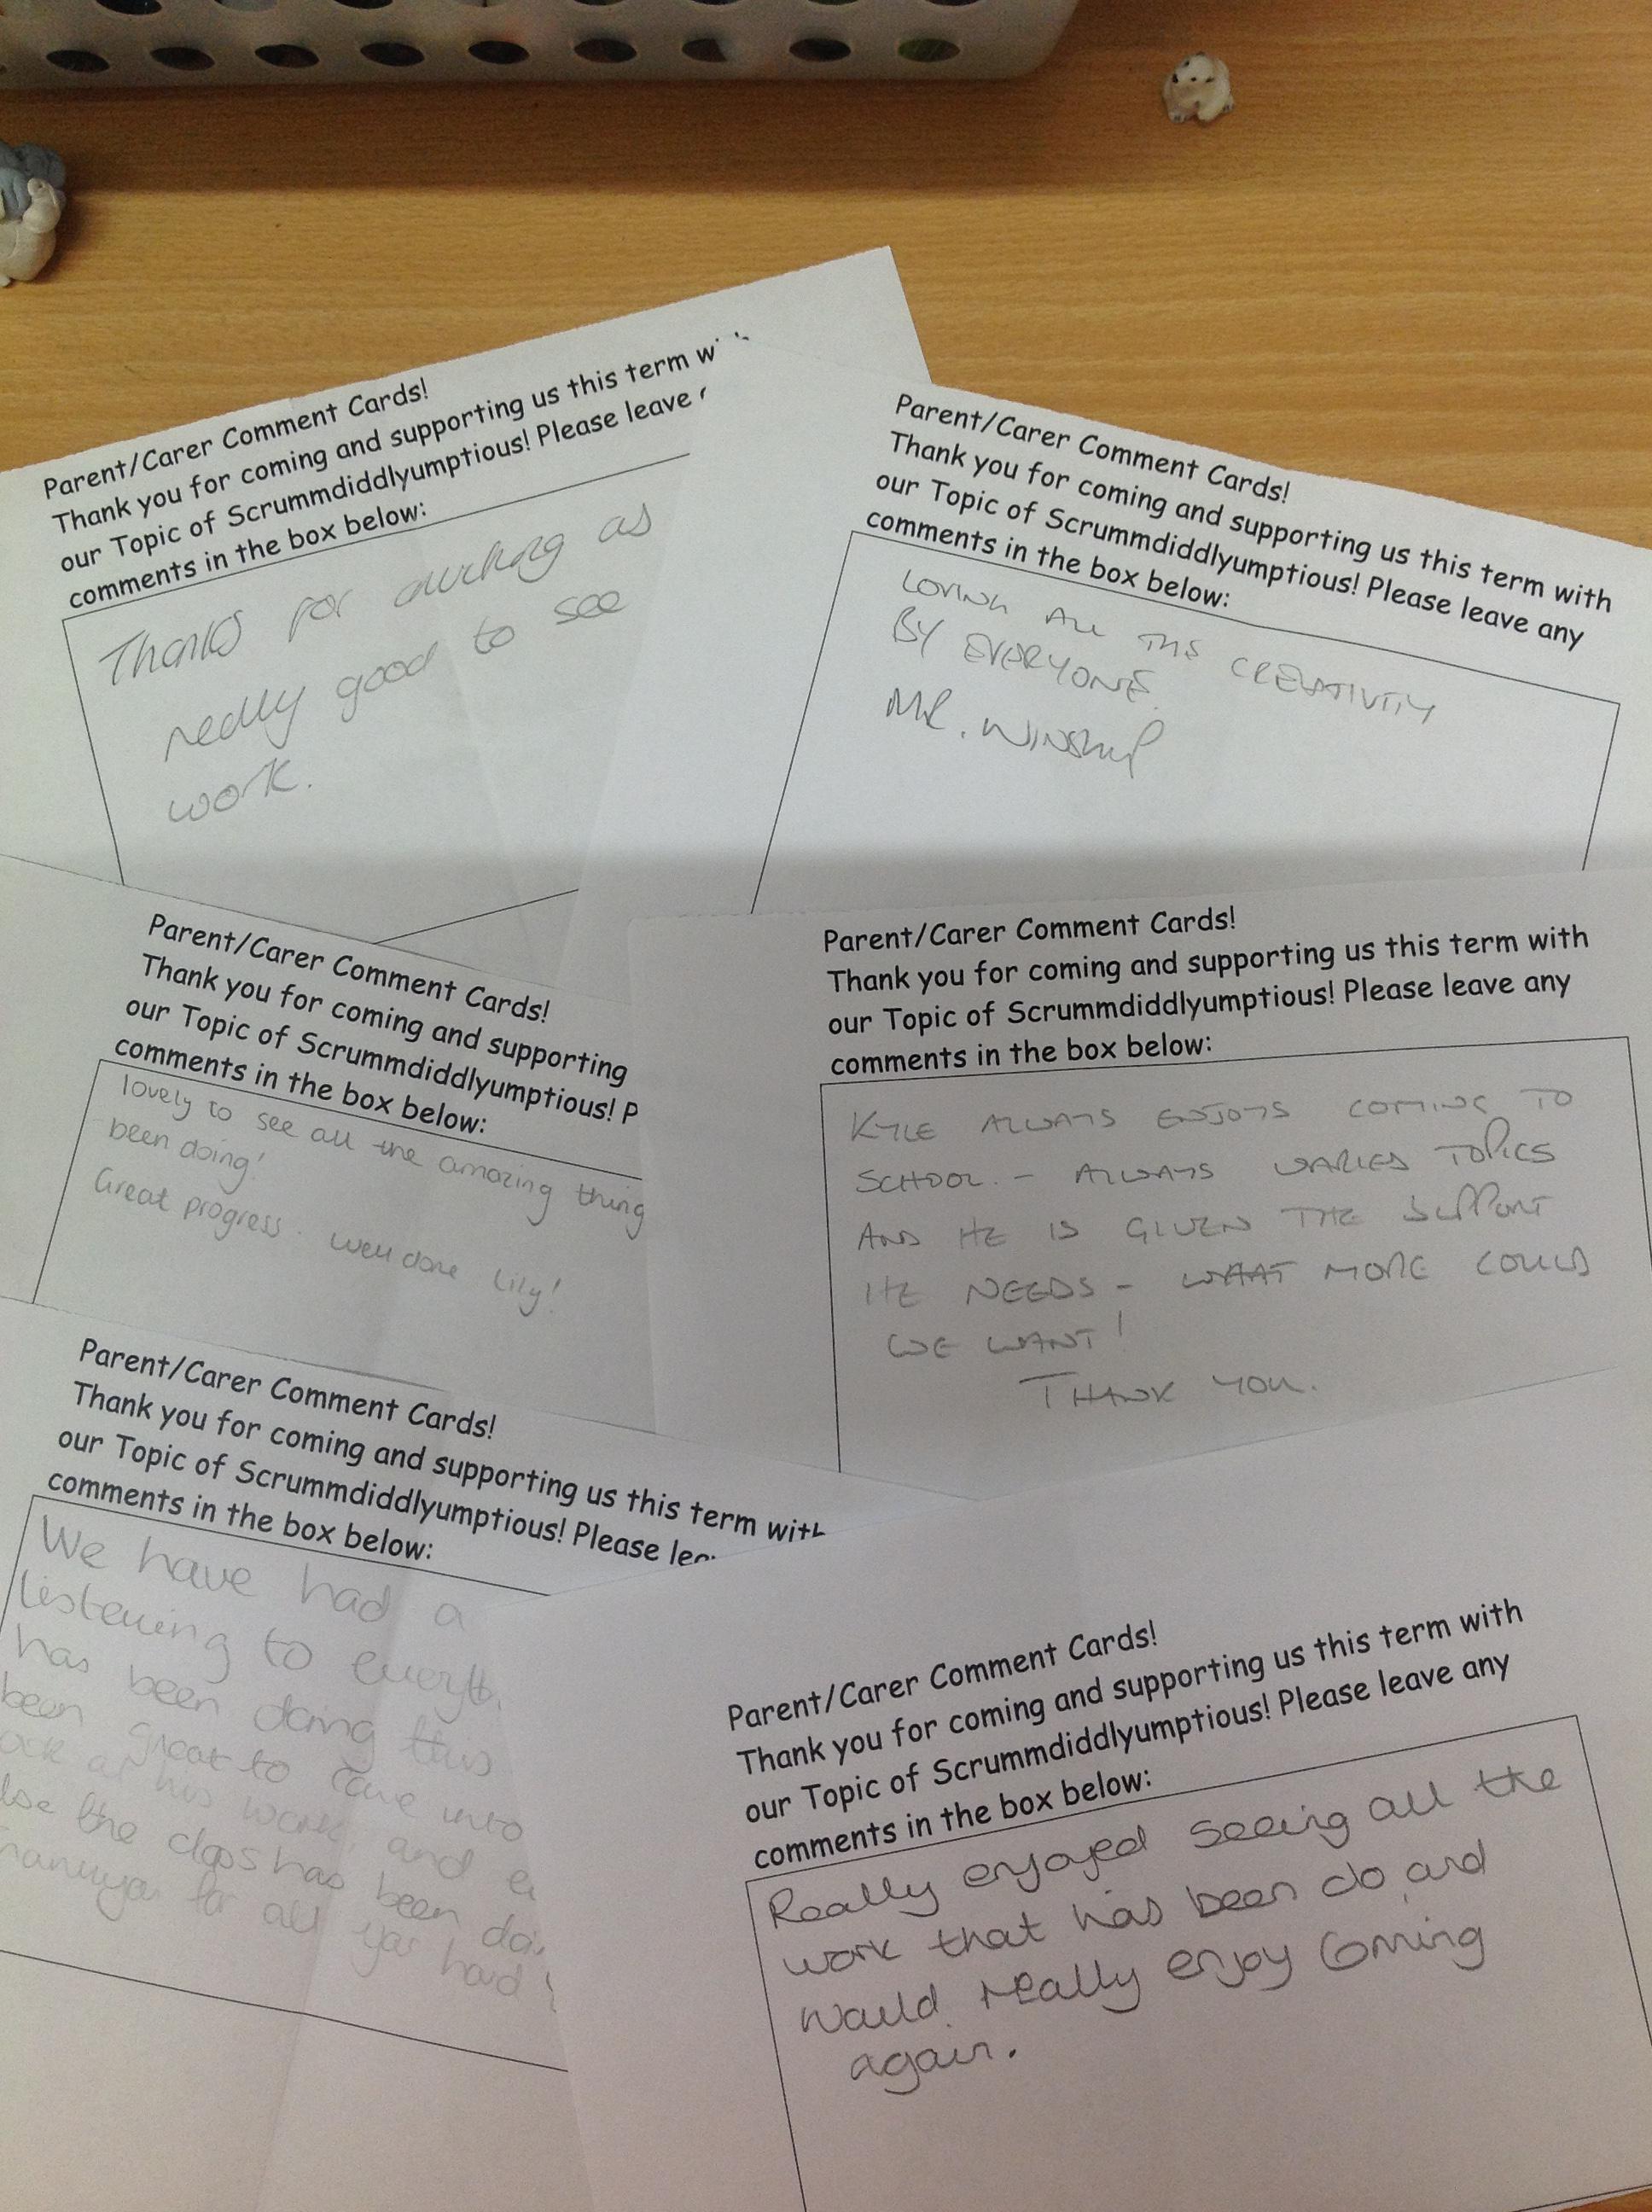 Parent/Carer Comment Cards!
Thank you for coming and supporting us this term
our Topic of Scrummdiddlyumptious! Please leave
comments in the box below:
Thanks for as
really good to see
work.
Parent/Carer Comment Cards!
Thank you for coming and supporting us this term with
our Topic of Scrummdiddlyumptious! Please leave any
comments in the box below:
LOVING ALL THE CREATIVITY
BY EVERYONE.
MR. WINSHIP
Parent/Carer Comment Cards!
Thank you for coming and supporting
our Topic of Scrummdiddlyumptious! P
comments in the box below:
lovely to see all the amazing thing
been doing!
Great progress. Well done Lily!
Parent/Carer Comment Cards!
Thank you for coming and supporting us this term with
our Topic of Scrummdiddlyumptious! Please leave any
comments in the box below:
KYLE ALWAYS ENJOYS COMING TO
SCHOOL. - ALWAYS VARIED TOPICS
AND HE IS GIVEN THE SUPPORT
HE NEEDS - WHAT MORE COULD
WE WANT!
THANK YOU.
Parent/Carer Comment Cards!
Thank you for coming and supporting us this term with
our Topic of Scrummdiddlyumptious! Please
comments in the box below:
We have had a
Listening to
has been doing this
been great to come into
at his work, and
the class has been
for all your hard
Parent/Carer Comment Cards!
Thank you for coming and supporting us this term with
our Topic of Scrummdiddlyumptious! Please leave any
comments in the box below:
Really enjoyed seeing all the
work that has been do, and
would really enjoy coming
again.